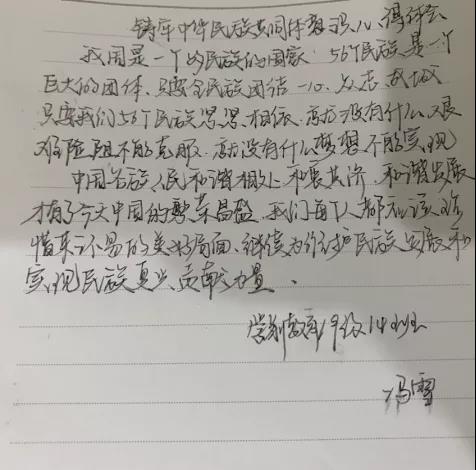 铸牢中华民族共同体意识心得体会
我国是一个多民族的国家，56个民族是一个
巨大的团体、只要全民族团结一心、众志成城
只要我们56个民族紧紧相依、就没有什么艰
难险阻不能克服、就没有什么梦想不能实现
中国各族人民和谐相处、和衷共济、和谐发展
才有了今天中国的繁荣昌盛，我们每个人都应该珍
惜来之不易的美好局面、继续为维护民族发展和
实现民族复兴贡献力量、
学前教育19级14班
冯雪